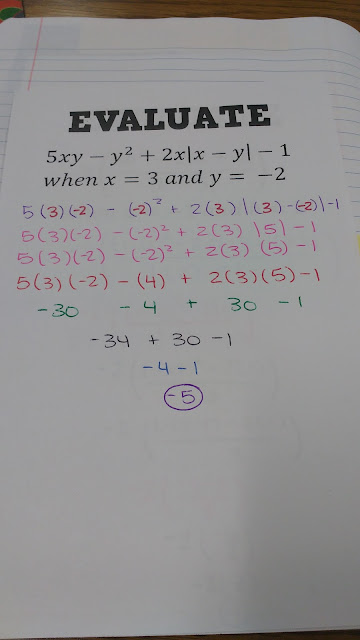 EVALUATE
5xy − y² + 2x|x − y| − 1
when x = 3 and y = −2
5(3)(-2) - (-2)² + 2(3)|(3)-(-2)|-1
5(3)(-2) - (-2)² + 2(3) |5| - 1
5(3)(-2) - (-2)² + 2(3) (5) - 1
5(3)(-2) - (4) + 2(3)(5)-1
-30 - 4 + 30 - 1
-34 + 30 - 1
-4 - 1
-5